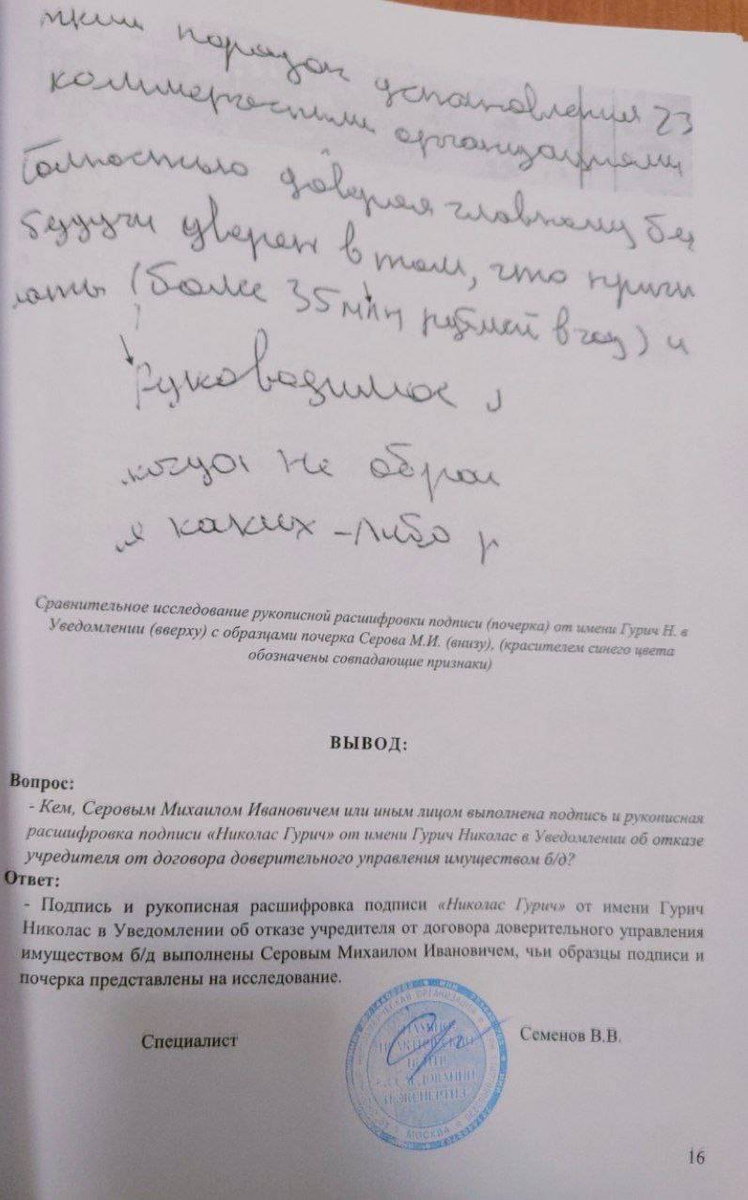 жий порядок установления 23
коммерческими организациями
Полностью доверяя главному бу
будучи уверен в том, что причи
латы (более 35 млн рублей в год) и
Руководимое
когда не обра
я каких-либо р
Сравнительное исследование рукописной расшифровки подписи (почерка) от имени Гурич Н. в
Уведомлении (вверху) с образцами почерка Серова М.И. (внизу), (красителем синего цвета
обозначены совпадающие признаки)
ВЫВОД:
Вопрос:
- Кем, Серовым Михаилом Ивановичем или иным лицом выполнена подпись и рукописная
расшифровка подписи «Николас Гурич» от имени Гурич Николас в Уведомлении об отказе
учредителя от договора доверительного управления имуществом б/д?
Ответ:
- Подпись и рукописная расшифровка подписи «Николас Гурич» от имени Гурич
Николас в Уведомлении об отказе учредителя от договора доверительного управления
имуществом б/д выполнены Серовым Михаилом Ивановичем, чьи образцы подписи и
почерка представлены на исследование.
Специалист
Семенов В.В.
МОСКВА
16